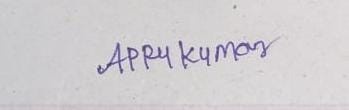 APPY KUMAR